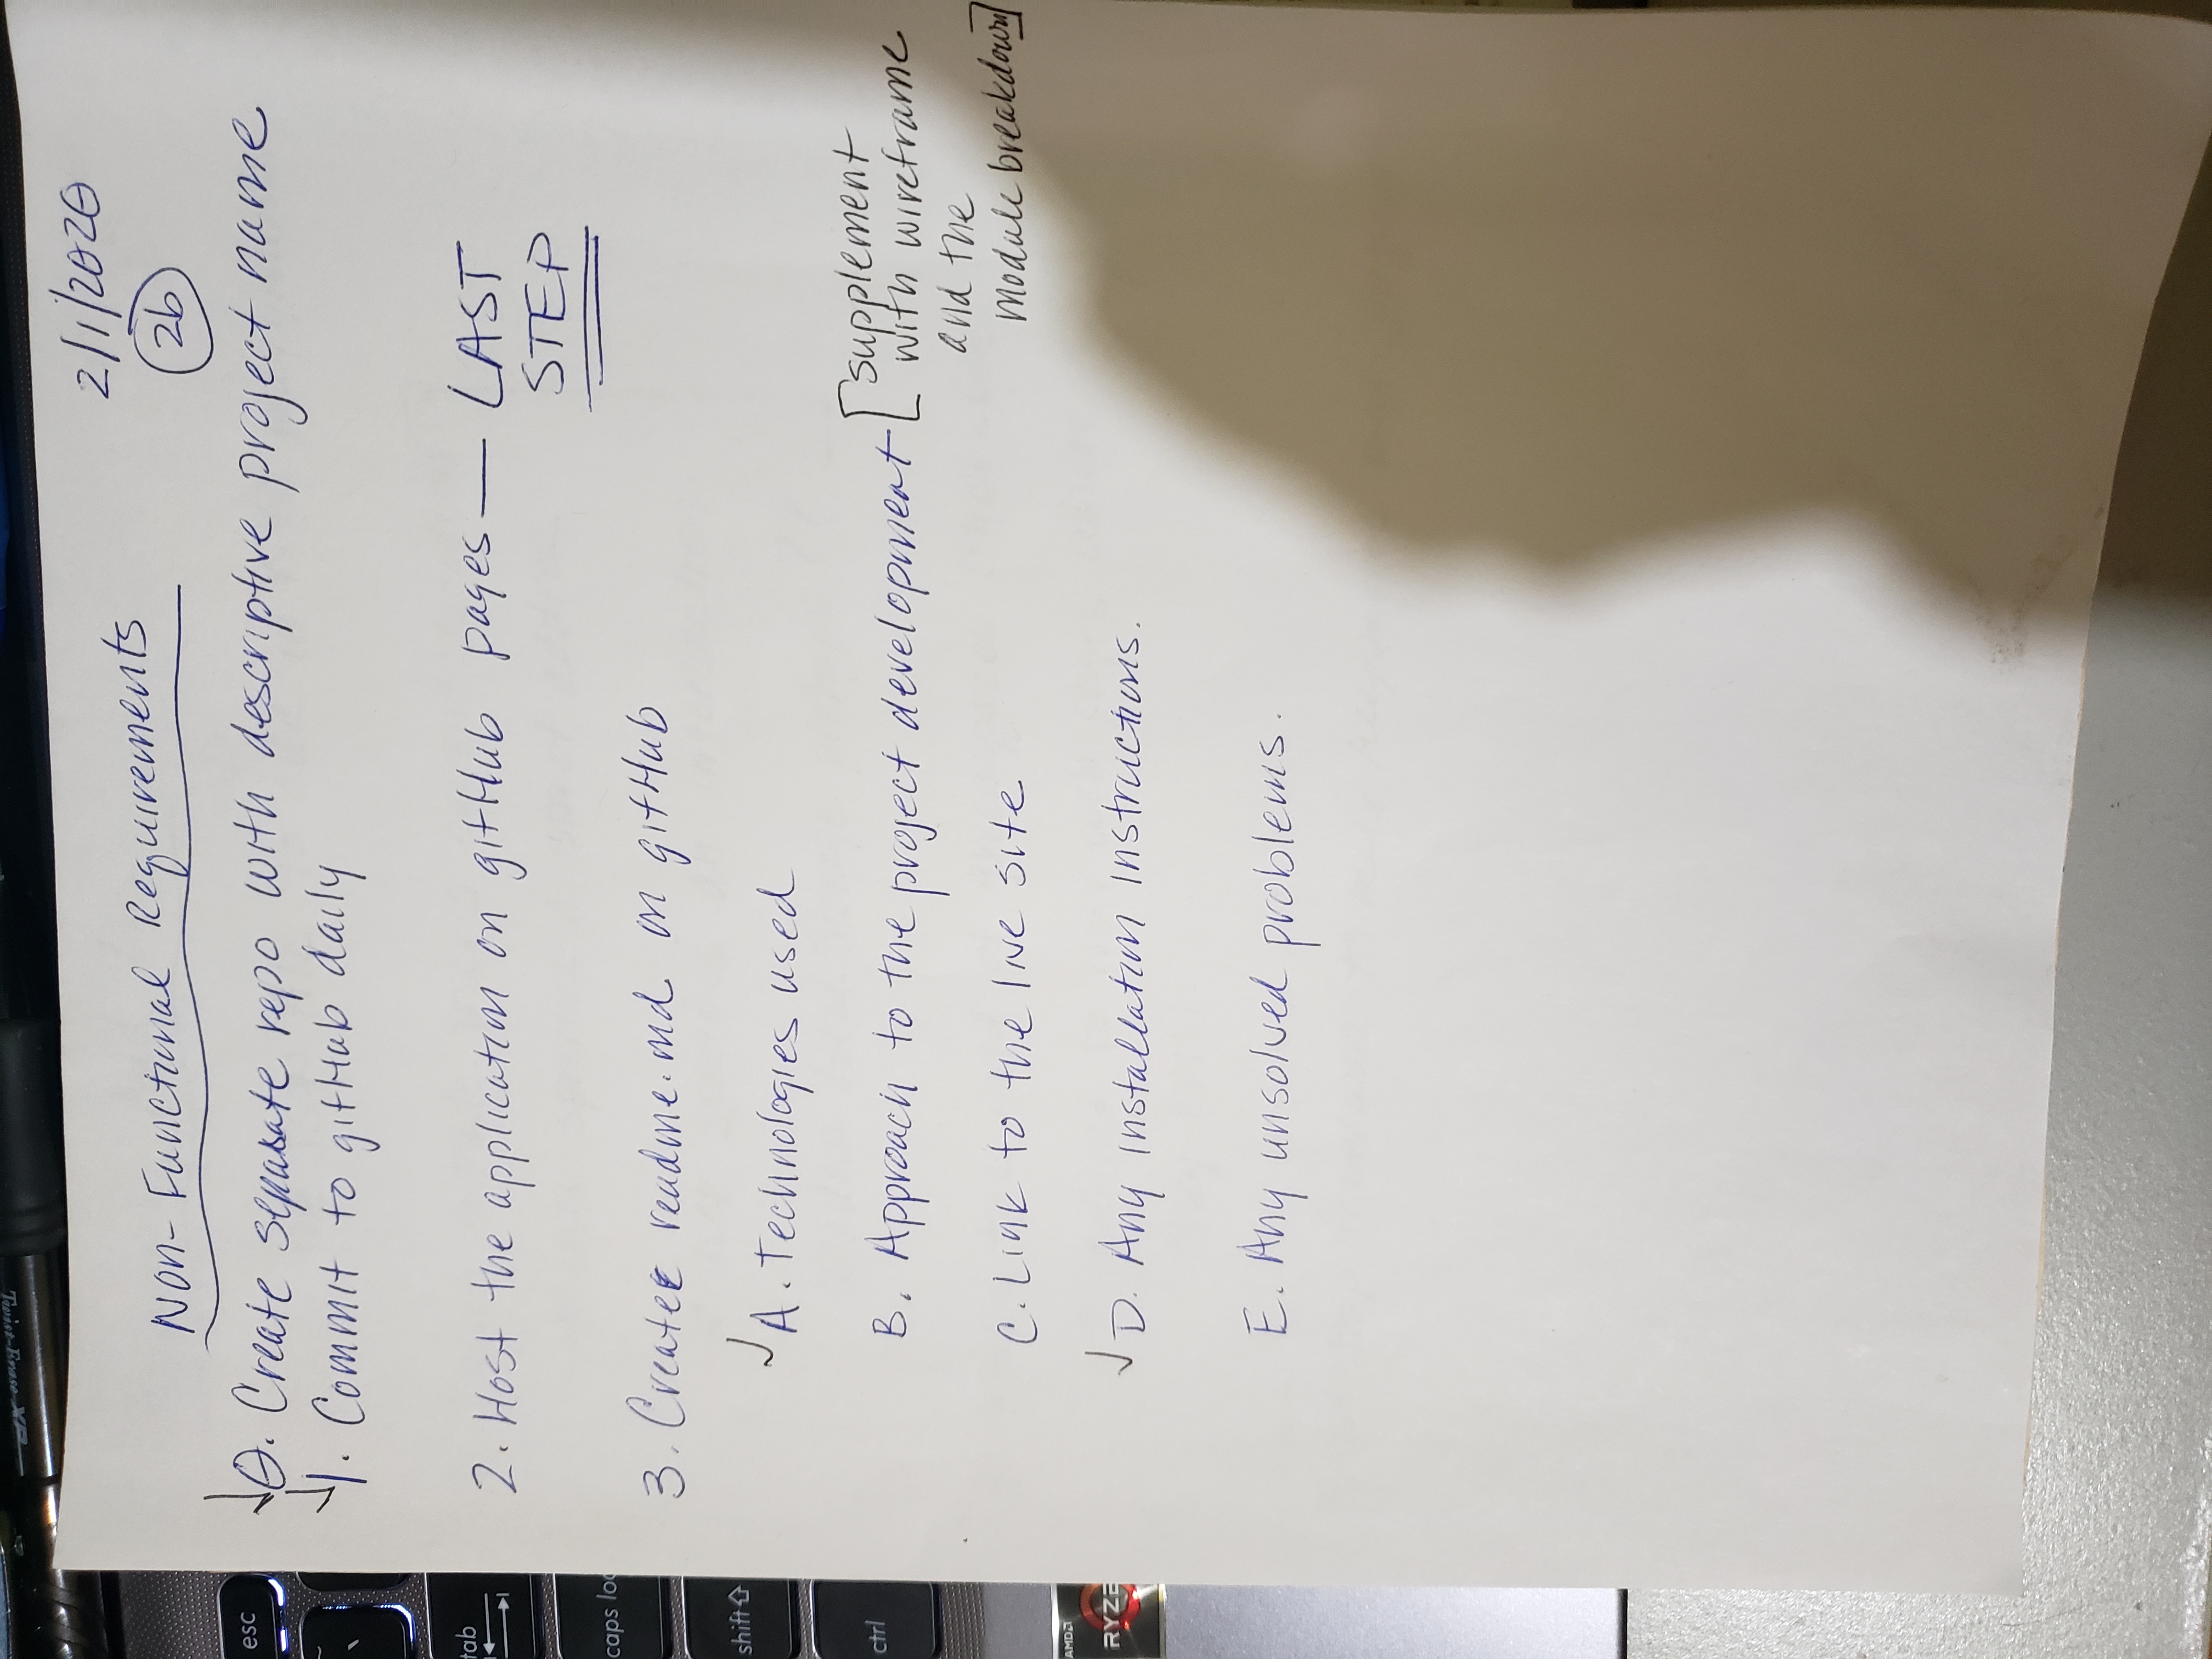 Twist-Erase XP
2/1/2020
2b
Non-Functional Requirements
✓ 0. Create separate repo with descriptive project name
✓ 1. Commit to gitHub daily
2. Host the application on gitHub pages — LAST
STEP
3. Create readme.md on gitHub
✓ A. Technologies used
B. Approach to the project development [supplement
with wireframe
and the
module breakdown]
C. Link to the live site
✓ D. Any installation instructions.
E. Any unsolved problems.
esc
~
`
tab
caps loc
shift
ctrl
AMD
RYZE